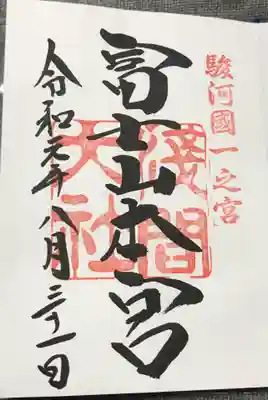 駿河國一之宮
富士山本宮
浅間大社
令和元年八月三十一日